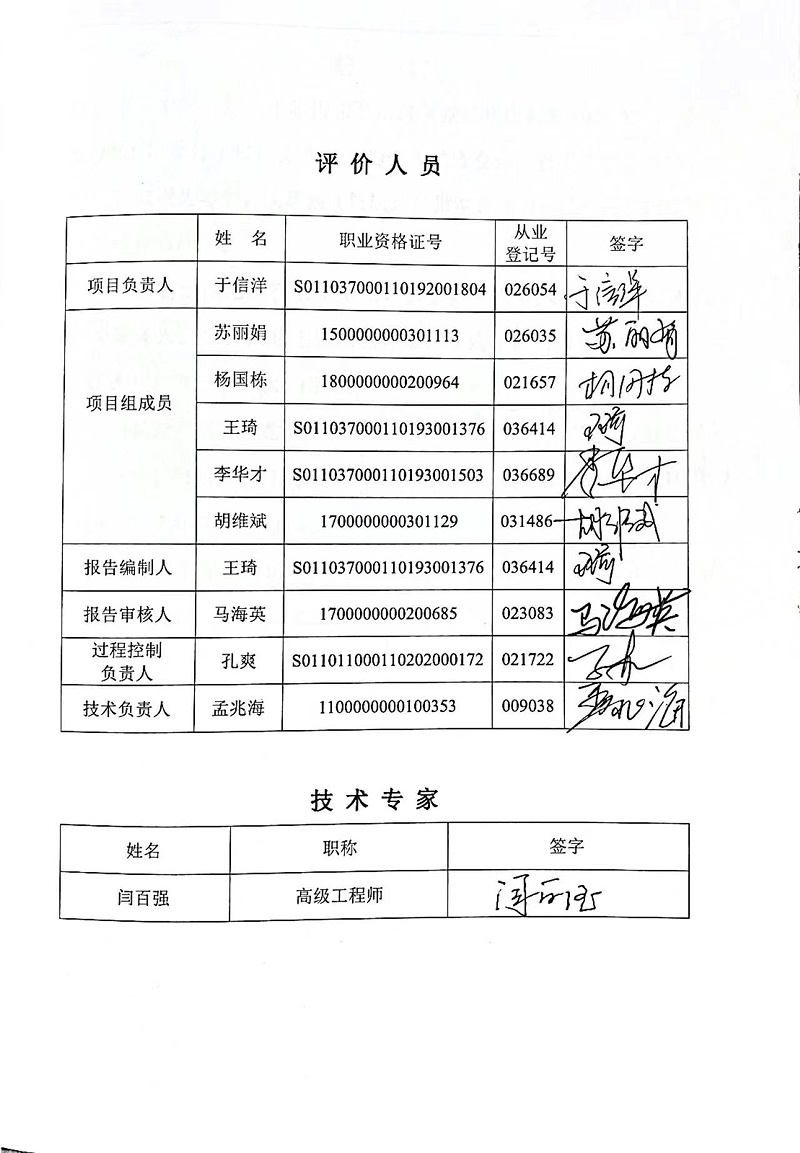 评价人员
姓 名 职业资格证号 从业登记号 签字
项目负责人 于信洋 S011037000110192001804 026054 于信洋
项目组成员 苏丽娟 1500000000301113 026035 苏丽娟
杨国栋 1800000000200964 021657
王琦 S011037000110193001376 036414 王琦
李华才 S011037000110193001503 036689 李华才
胡维斌 1700000000301129 031486 胡维斌
报告编制人 王琦 S011037000110193001376 036414 王琦
报告审核人 马海英 1700000000200685 023083 马海英
过程控制负责人 孔爽 S011011000110202000172 021722
技术负责人 孟兆海 1100000000100353 009038 孟兆海
技术专家
姓名 职称 签字
闫百强 高级工程师 闫百强